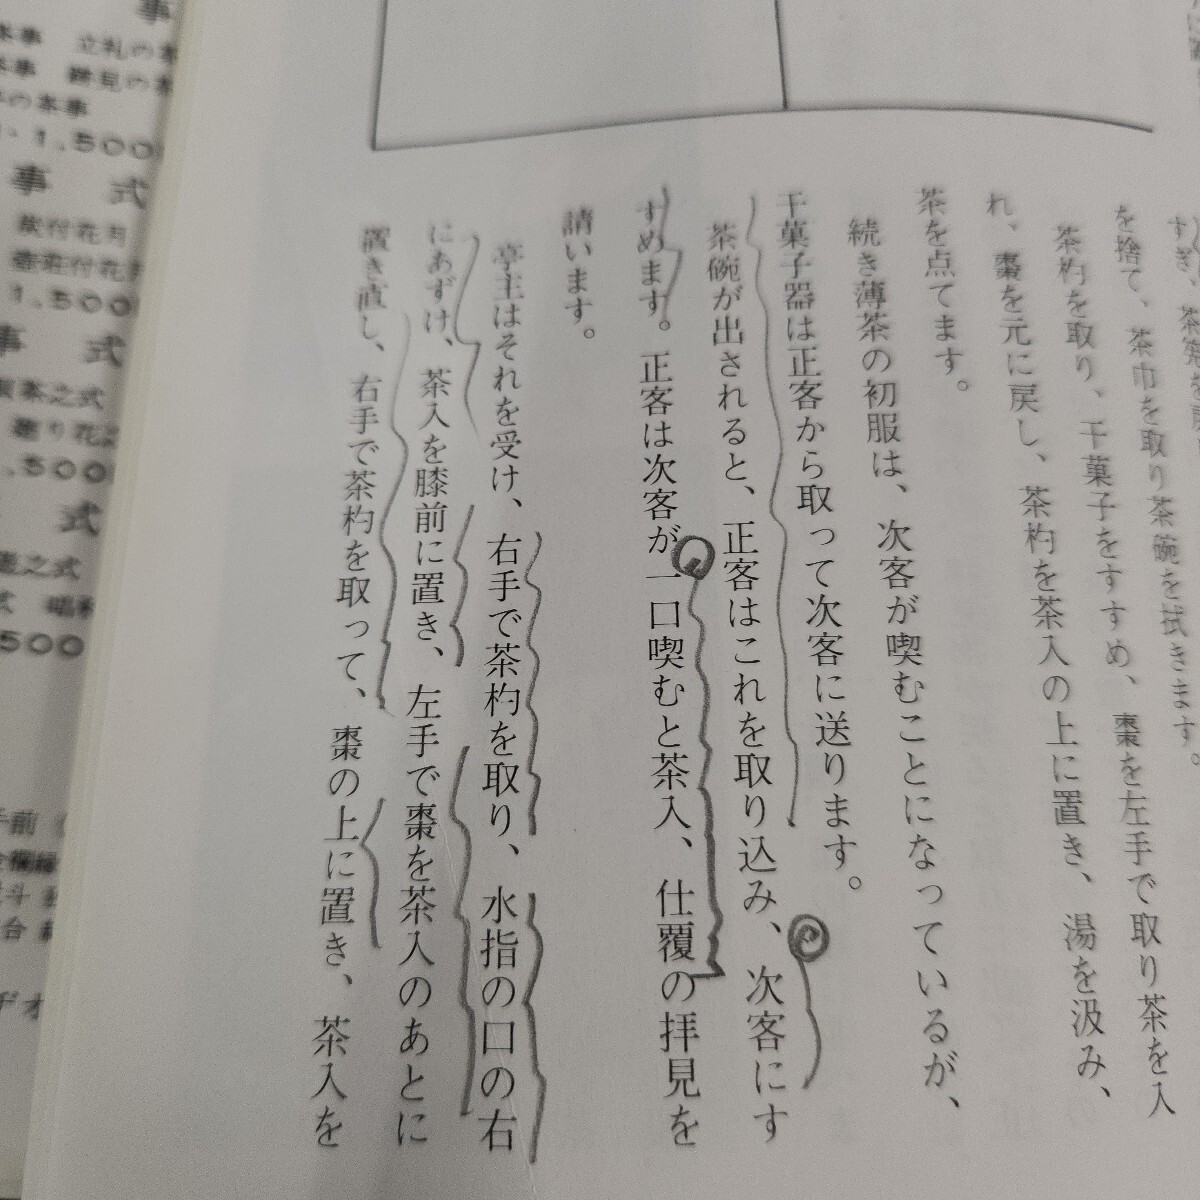 すぎ、茶
を捨て、茶巾を取り茶碗を拭きます。
茶杓を取り、干菓子をすすめ、棗を左手で取り茶を入
れ、棗を元に戻し、茶杓を茶入の上に置き、湯を汲み、
茶を点てます。
続き薄茶の初服は、次客が喫むことになっているが、
干菓子器は正客から取って次客に送ります。
茶碗が出されると、正客はこれを取り込み、次客にす
すめます。正客は次客が一口喫むと茶入、仕覆の拝見を
請います。
亭主はそれを受け、右手で茶杓を取り、水指の口の右
にあずけ、茶入を膝前に置き、左手で棗を茶入のあとに
置き直し、右手で茶杓を取って、棗の上に置き、茶入を
事
茶事 立札の茶
茶事 跡見の茶
の茶事
1,500
事 式
炭付花月
壺荘付花月
1,500
事 式
茶之式
廻り花
,500
式
之式
500